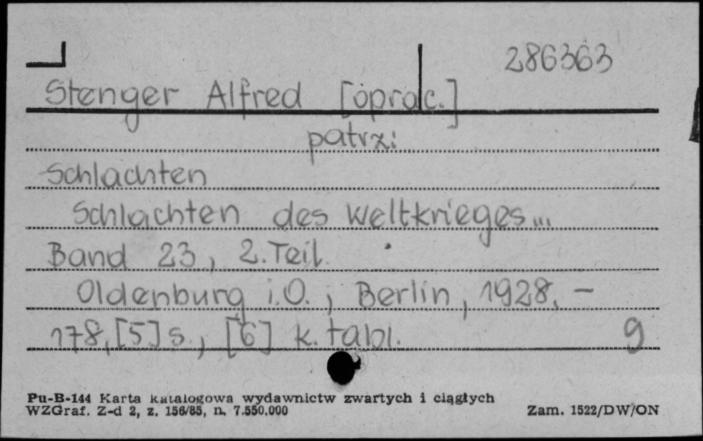 286363
Stenger Alfred [oprac.]
patrz:
Schlachten
Schlachten des Weltkrieges...
Band 23, 2. Teil.
Oldenburg i.O., Berlin, 1928, -
178, [5] s., [6] k. tabl. 9
Pu-B-144 Karta katalogowa wydawnictw zwartych i ciągłych
WZGraf. Z-d 2, z. 156/85, n. 7.550.000 Zam. 1522/DW/ON